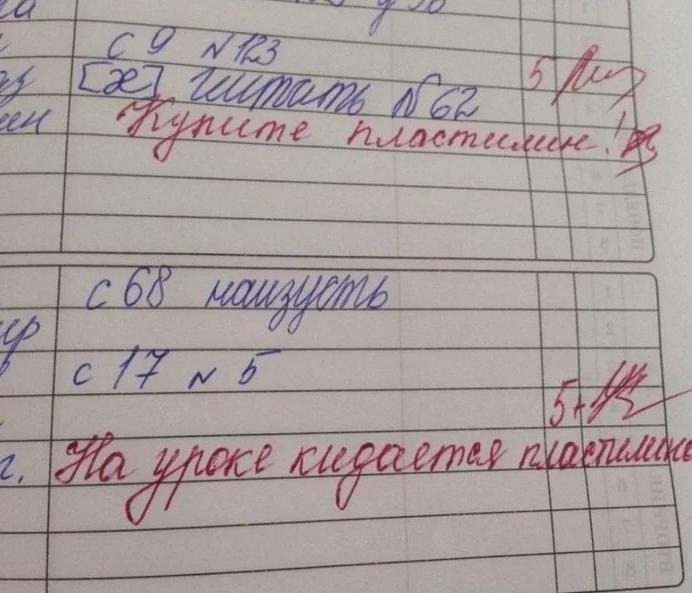 с 9 №123
[æ] читать №62 5
Купите пластилин!
с 68 наизусть
с 17 № 5
5+
На уроке кидается пластилино